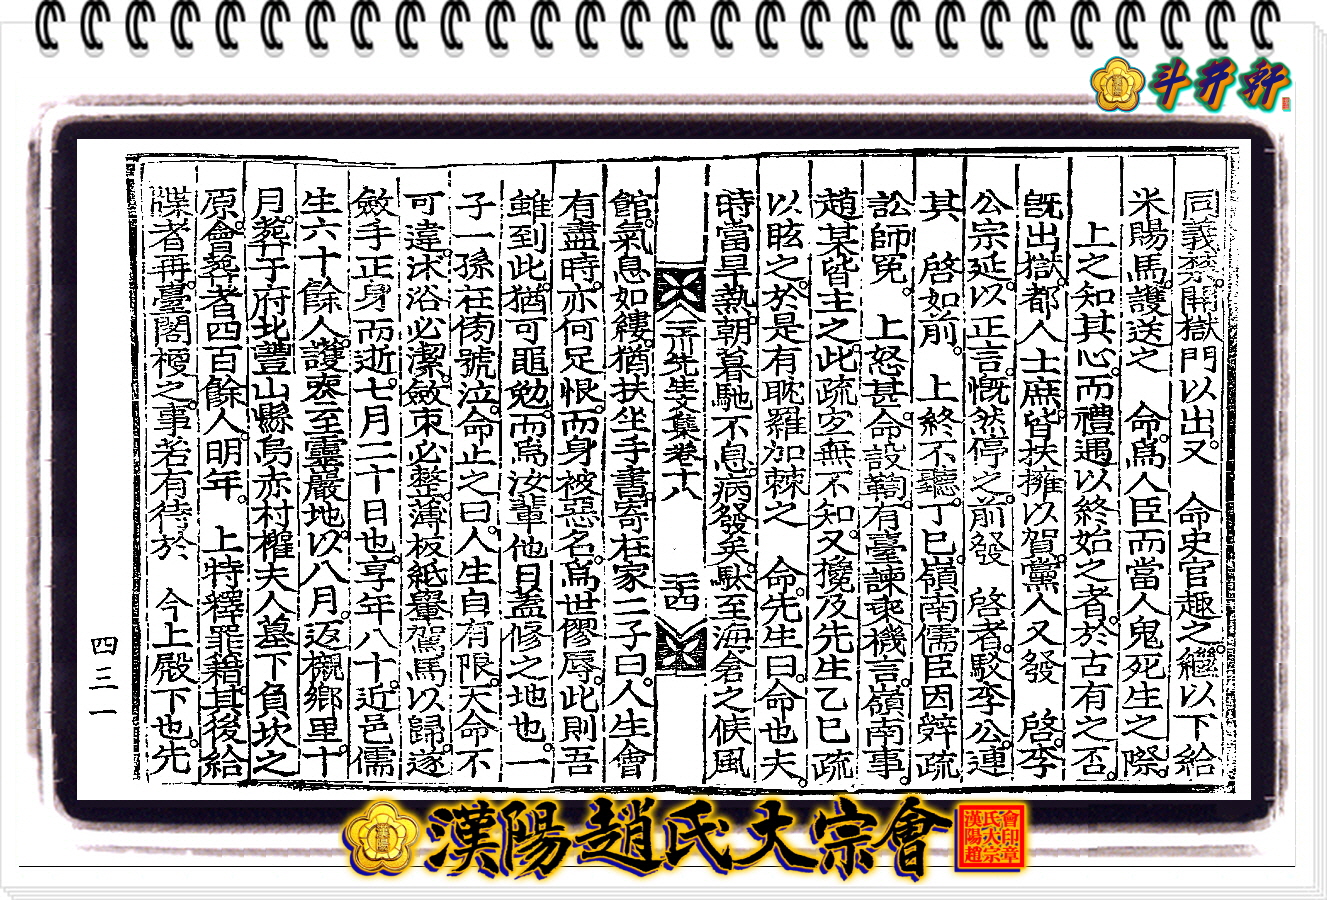 斗井軒
同義禁開獄門以出又　命史官趣之繼以下給
米陽馬護送之　命爲人臣而當人鬼死生之際
上之知其心而禮遇以終始之者於古有之否
旣出獄都人士庶皆扶擁以賀黨人又發　啓李
公宗延以正言慨然停之前發　啓者駁李公連
其　啓如前　上終不聽丁巳嶺南儒臣因辭疏
訟師寃　上怒甚命設鞫有臺諫乘機言嶺南事
趙某皆主之此疏空無不知又攙及先生乙巳疏
以眩之於是有耽羅加棘之　命先生曰命也夫
時當旱熱朝暮馳不息病發矣馱至海倉之候風
先生文集卷十八　三十四
館氣息如縷猶扶坐手書寄在家二子曰人生會
有盡時亦何足恨而身被惡名爲世僇辱此則吾
雖到此猶可黽勉而爲汝輩他日盖修之地也一
子一孫在傍號泣命止之曰人生自有限大命不
可違沐浴必潔斂束必整薄板紙轝駕馬以歸遂
斂手正身而逝七月二十日也享年八十近邑儒
生六十餘人護喪至靈巖地以八月返櫬鄕里十
月葬于府北豐山縣烏赤村權夫人墓下負坎之
原會葬者四百餘人明年　上特釋罪籍其後給
牒者再臺閣梗之事若有待於　今上殿下也先
四三一
漢陽趙氏大宗會
漢陽趙氏大宗會印章